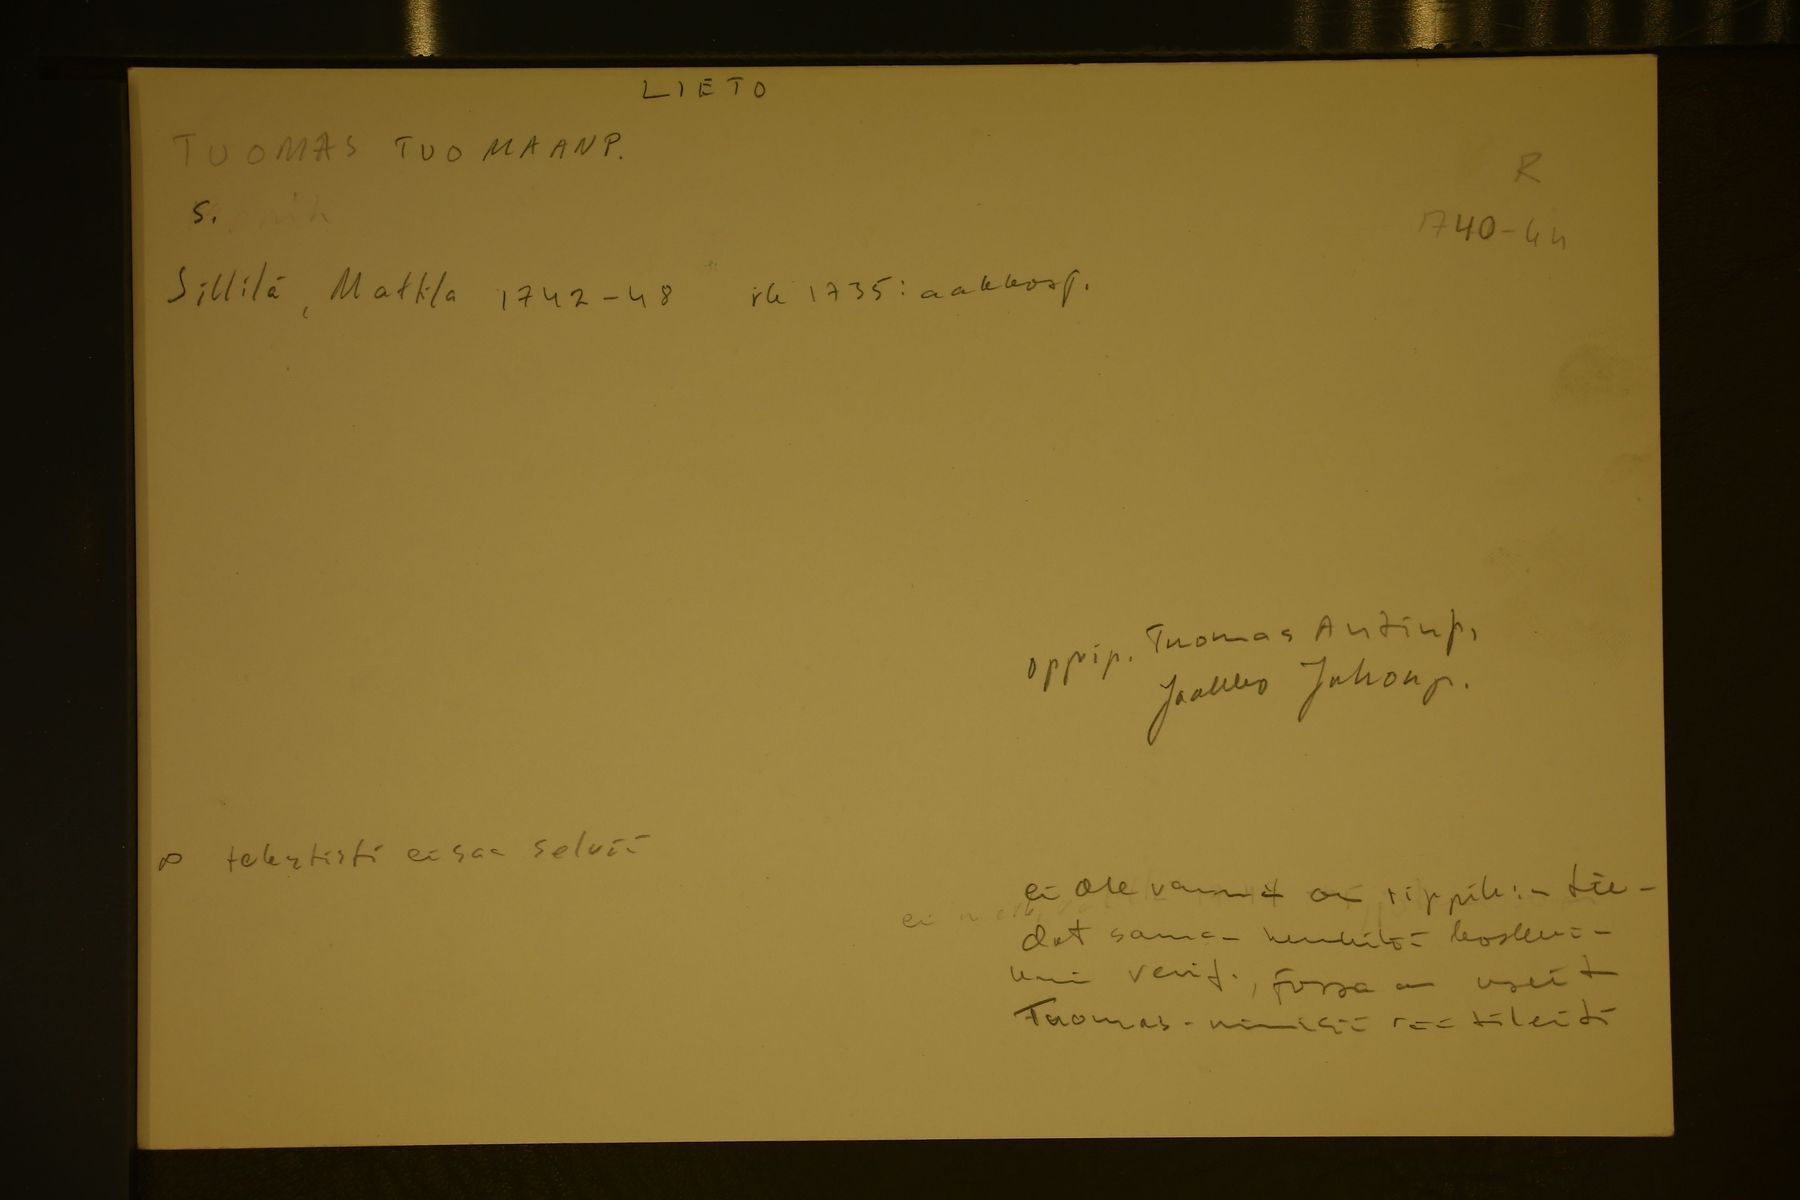 LIETO
TUOMAS TUOMAANP.
R
s.
1740-44
Sillilä, Mattila 1742-48 rk 1735: aakkosp.
oppip. Tuomas Antinp.
Jaakko Juhonp.
∞ tekstistä ei saa selvää
ei ole varmaa rippik:n tie-
dot saman henkilön
verif., jossa on useita
Tuomas-nimisiä räätäleitä